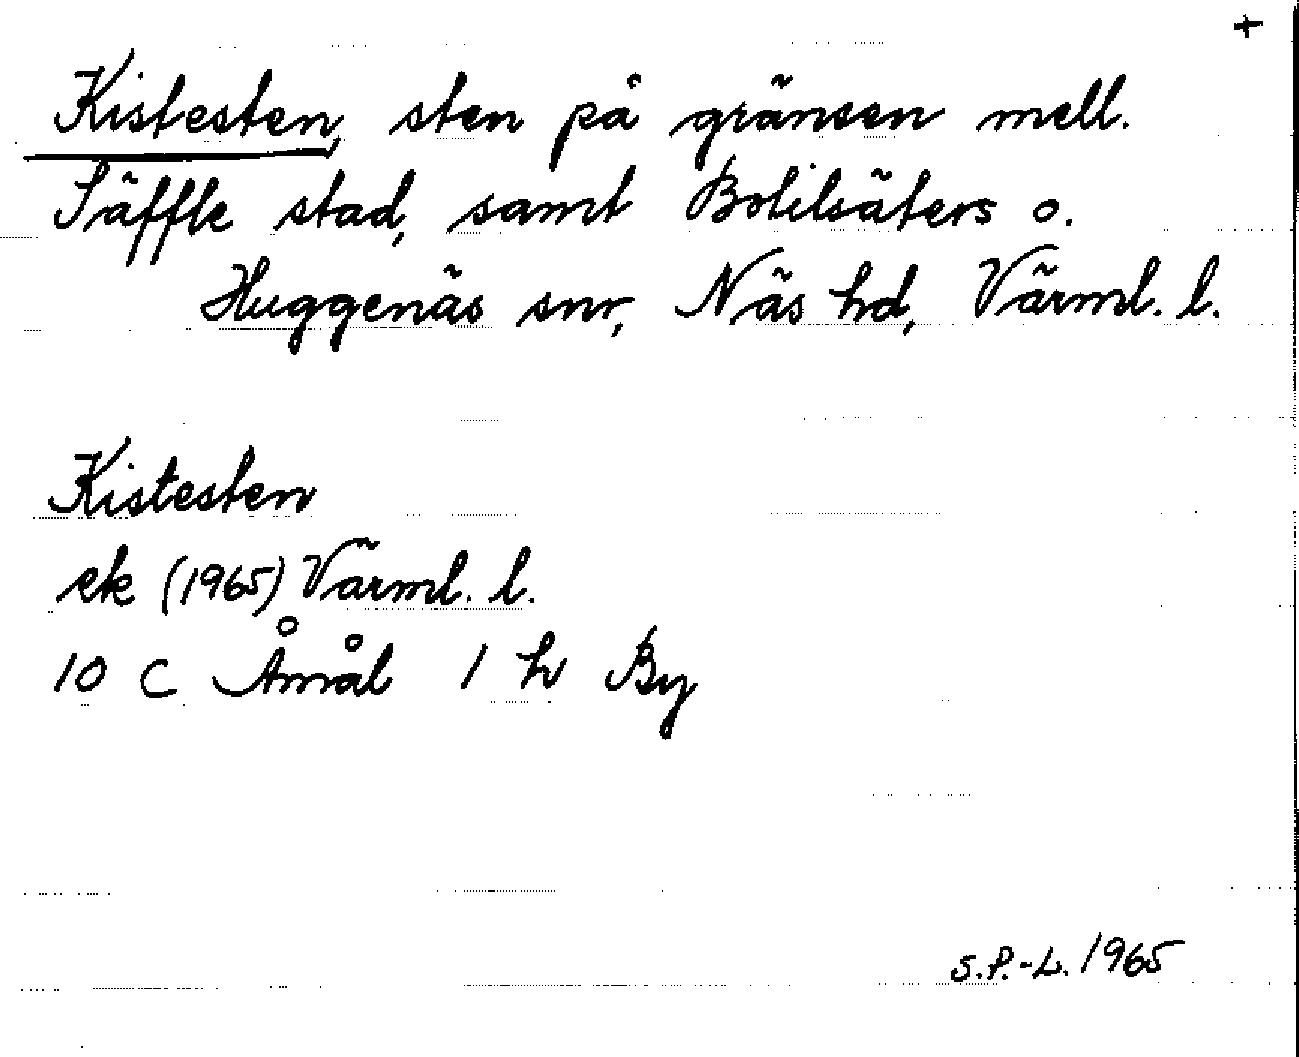 +
Kistesten, sten på gränsen mell.
Säffle stad, samt Botilsäters o.
Huggenäs snr, Näs hd, Värml. l.
Kistesten
ek (1965) Värml. l.
10 C Åmål 1 h By
S.P.-L. 1965